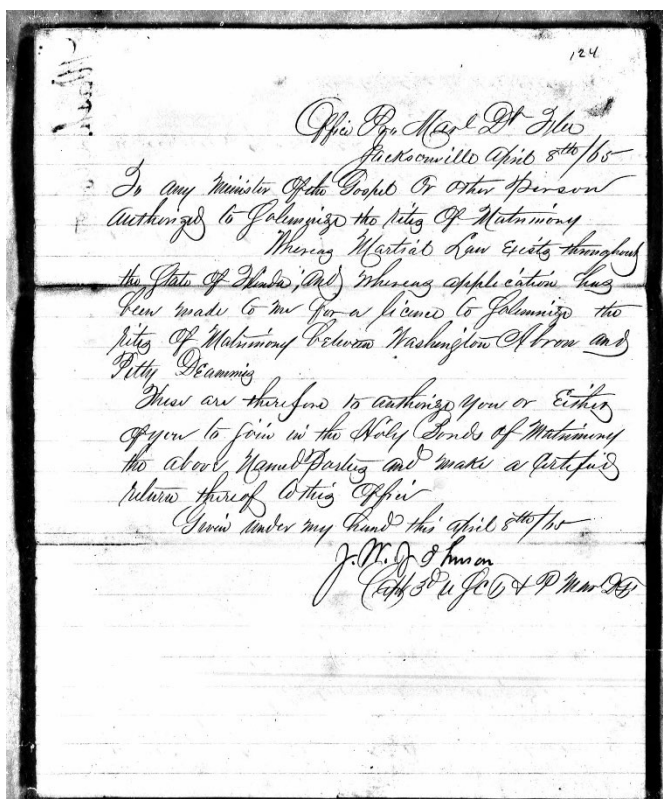 124
Office Pro Marl Dt Fla
Jacksonville April 8th/65
To any Minister Of the Gospel Or other Person
Authorized to Solemnize the rites Of Matrimony
Whereas Martial Law Exists throughout
the State of Florida, And whereas application has
been made to me for a licence to Solemnize the
rites Of Matrimony between Washington Abron and
These are therefore to authorize you or Either
of you to join in the Holy Bonds of Matrimony
the above Named Parties and make a Certified
return thereof to this Office
Given under my hand this April 8th/65
J. W. Johnson
Capt 3d U S C T & P Mar D F